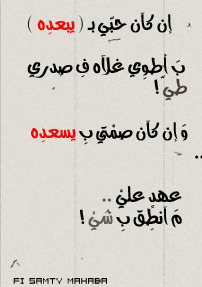 إن كآن حبّي بـ ( يبعدِه )
بَ أطوِي غلآه فِ صدري
طيّ !
وَ إن كآن صمْتي بِ يسعدِه
..
عهدٍ عليْ ..
مَ آنطِق بِ شيْ !
FI SAMTY MAHABA